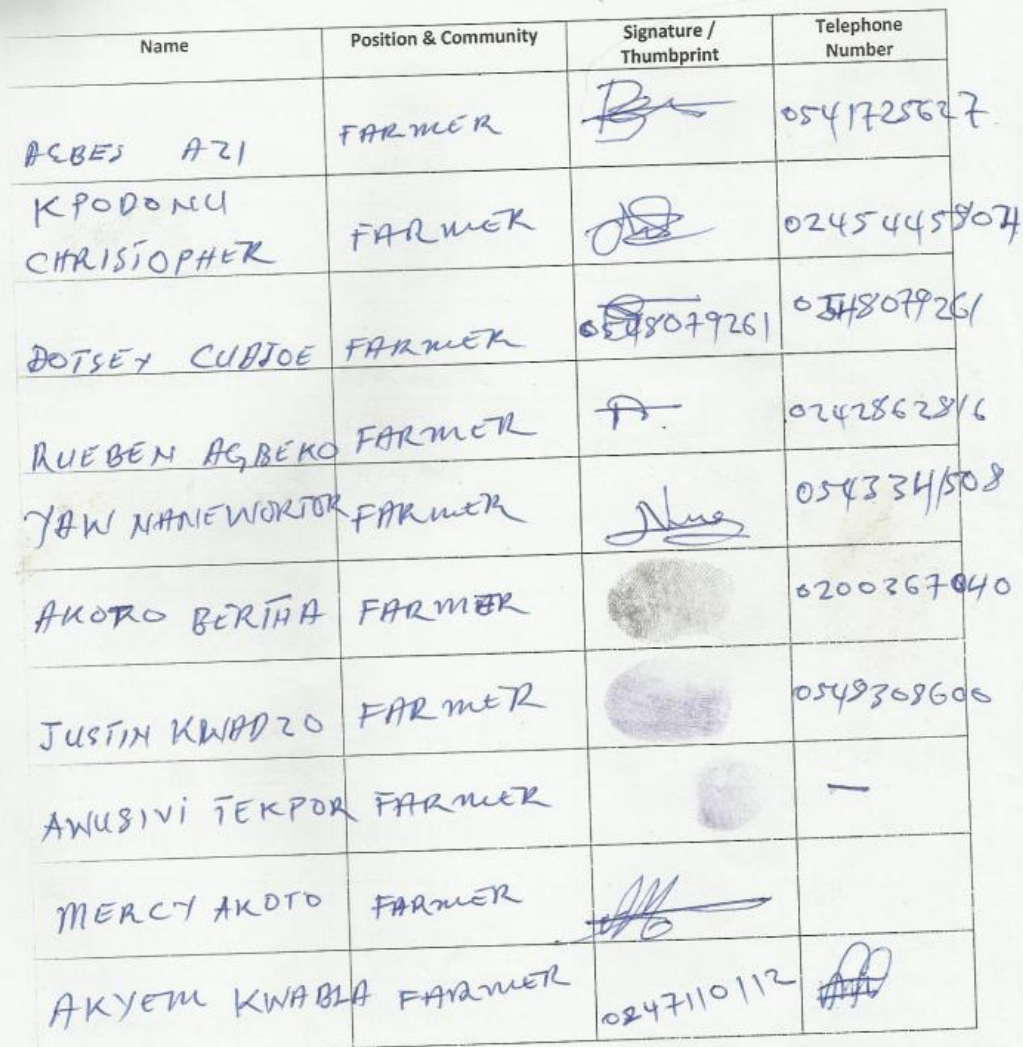 Name Position & Community Signature / Telephone
Thumbprint Number
AGBES AZI FARMER 0541725627
KPODONU
CHRISTOPHER FARMER
DOTSEY CUDJOE FARMER 0548079261 0548079261
RUEBEN AGBEKO FARMER 0242862816
YAW NANEWORTOR FARMER 0543341508
AKORO BERTHA FARMER 0200367040
JUSTIN KWADZO FARMER 0549308600
AWUSIVI TEKPOR FARMER —
MERCY AKOTO FARMER
AKYEM KWABLA FARMER 0247110112